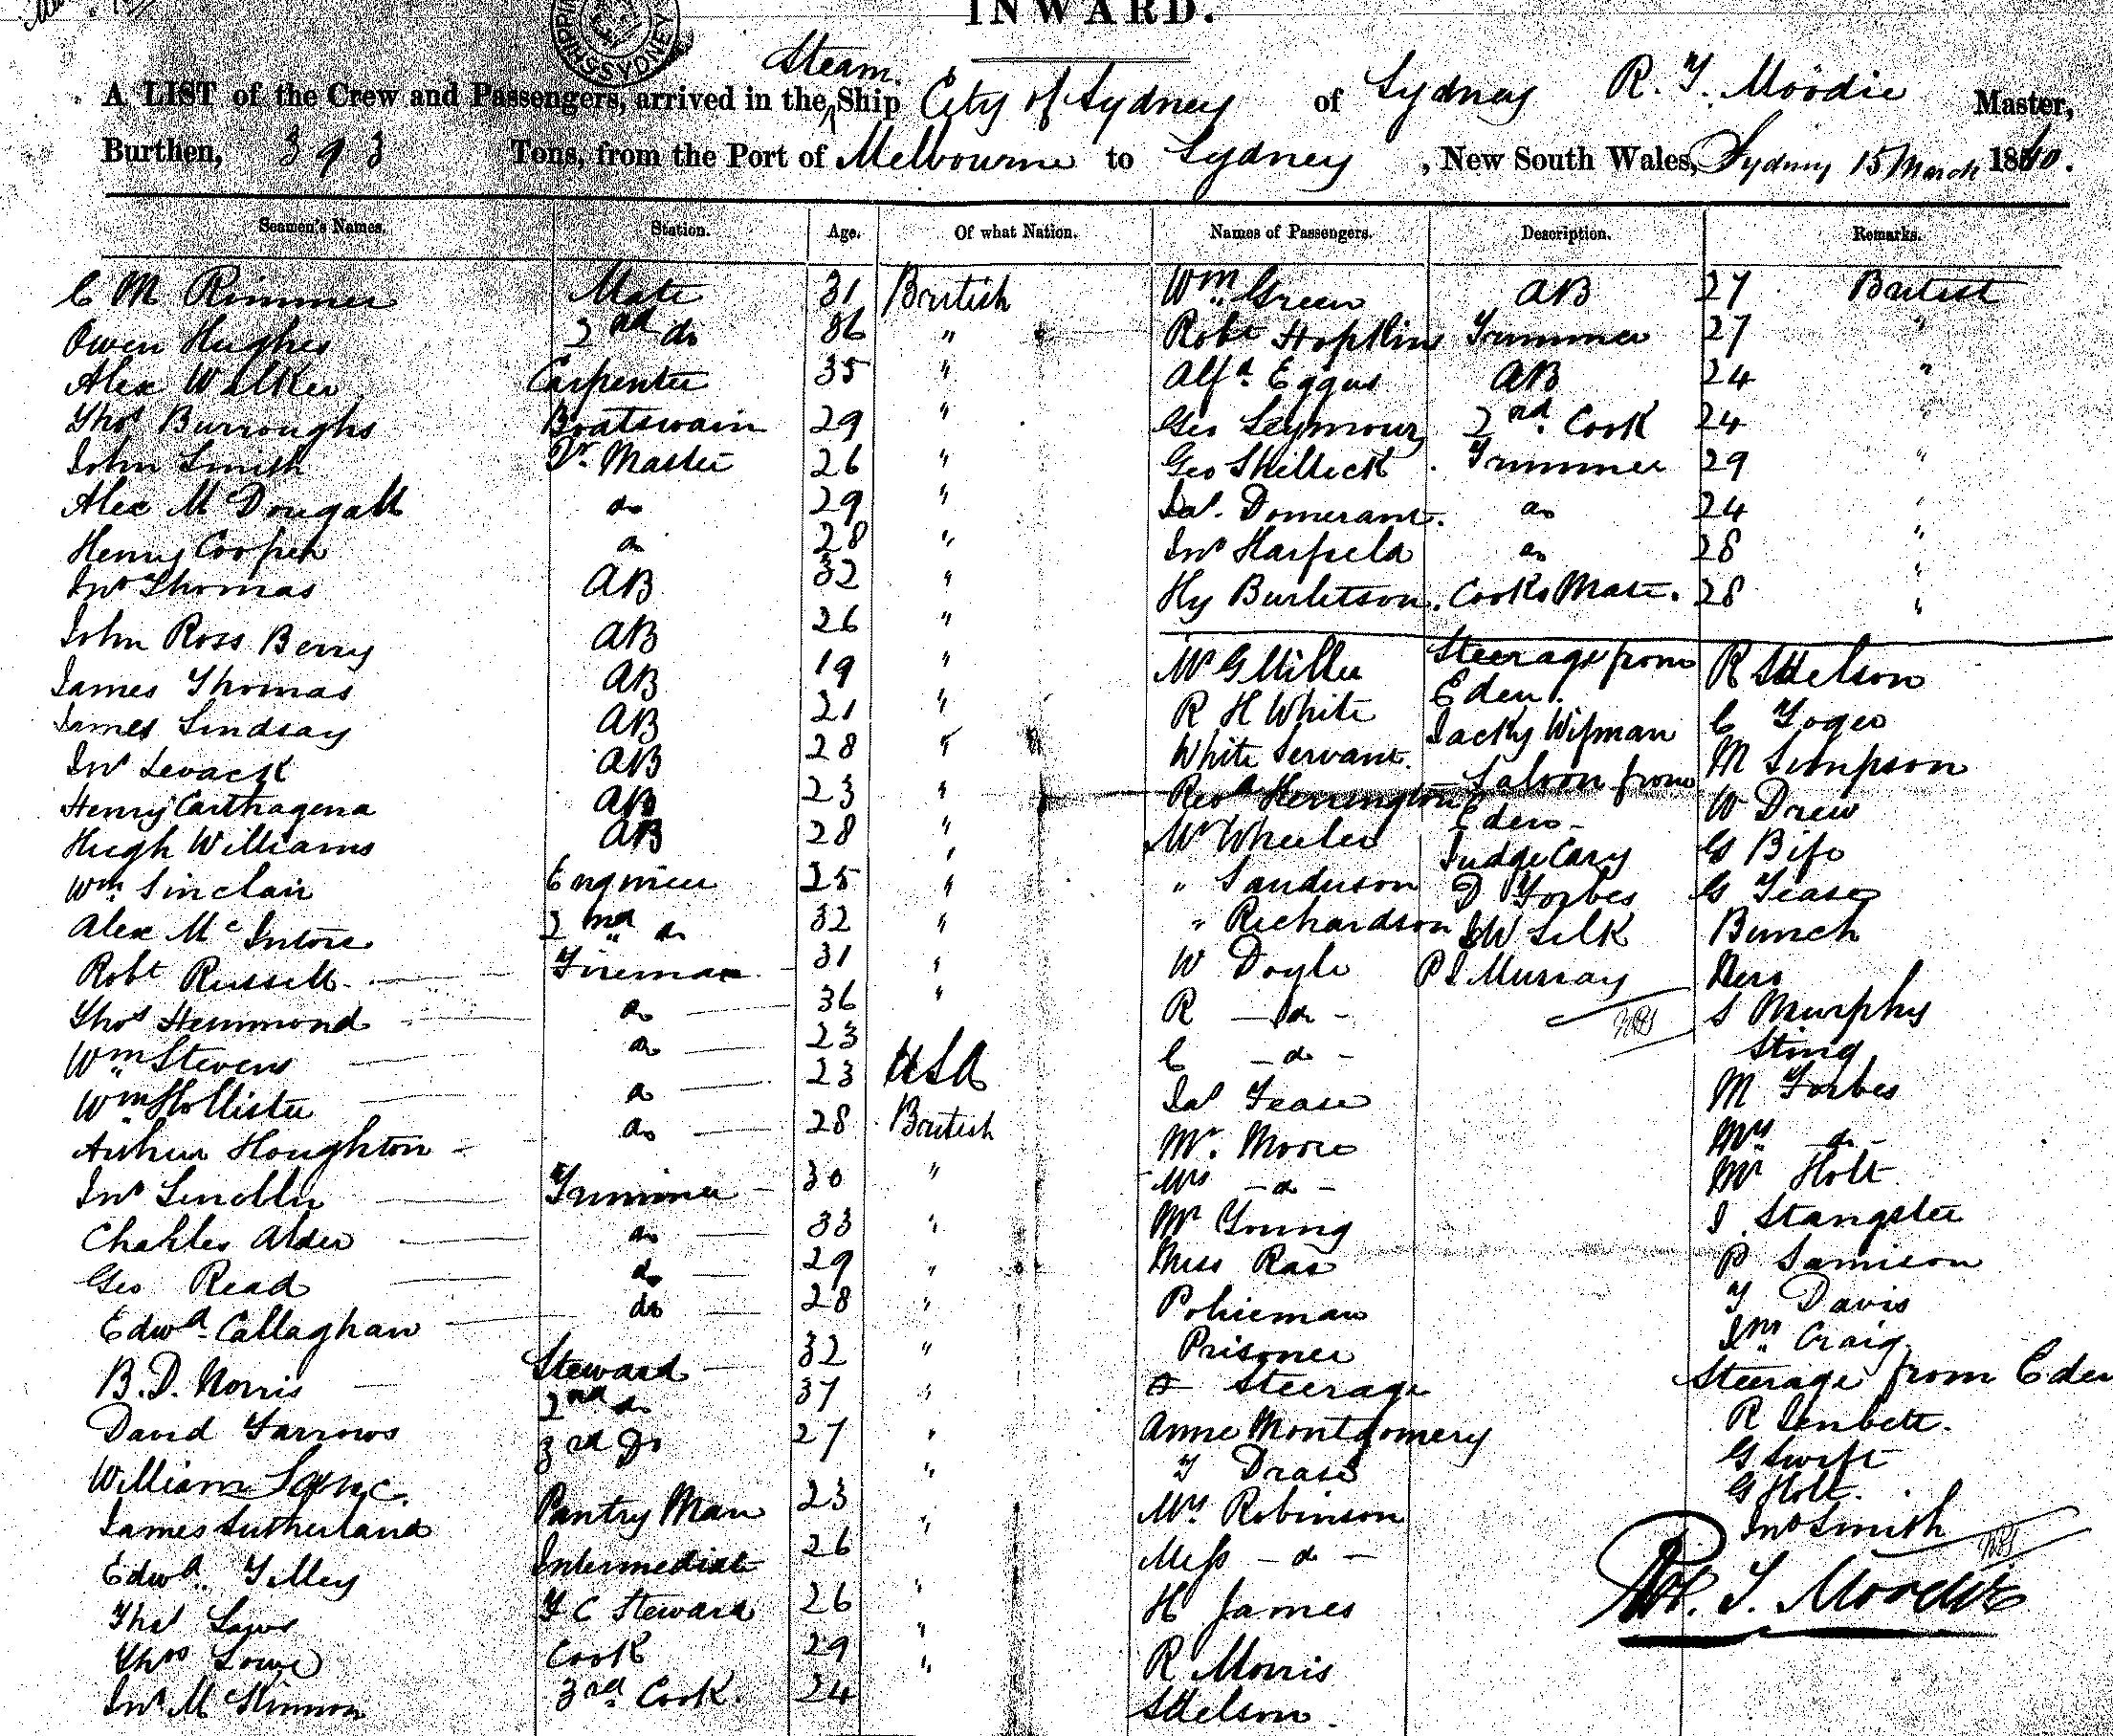 INWARD.
Steam
A LIST of the Crew and Passengers, arrived in the Ship City of Sydney of Sydney R. T. Moodie Master,
Burthen, 393 Tons, from the Port of Melbourne to Sydney, New South Wales, Sydney 15 March 18
Seamen's Names. Station. Age. Of what Nation. Names of Passengers. Description. Remarks.
C M Rimmer Mate 31 British
Owen Hughes 2nd do 36 "
Alex Walker Carpenter 35 "
Thos Burroughs Boatswain 29 "
John Smith Qr. Master 26 "
Alex McDougall do 29 "
Henry Cooper do 28 "
Jno Thomas AB 32 "
John Ross Berry AB 26 "
James Thomas AB 19 "
James Lindsay AB 21 "
Jno Levack AB 28 "
Henry Carthagena AB 23 "
Hugh Williams AB 28 "
Wm Sinclair Engineer 25 "
Alex Mc 2nd do 32 "
Robt Russell Fireman 31 "
Thos Hemmond do 36 "
Wm Stevens do 23
Wm Hollister do 23 USA
Arthur Houghton do 28 British
Jno Trimmer 30 "
Charles Alder do 33 "
Geo Read do 29 "
Edwd Callaghan do 28 "
B. D. Norris Steward 32 "
David Farrows 2nd do 37 "
William Lane 3rd Do 27 "
James Sutherland Pantry Man 23 "
Edwd Tilley Intermediate 26 "
Thos Laws F C Steward 26 "
Thos Lowe Cook 29 "
Jno McKinnon 3rd Cook 24
Wm Green AB 27 British
Robt Hopkins Trimmer 27 "
Alfd AB 24 "
Geo Seymour 2nd Cook 24 "
Geo Skelleck Trimmer 29 "
Jas. do 24 "
Jno Harfield do 28 "
Hy Burletson. Cooks Mate. 28 "
Mr G Miller
R H White
White Servant.
Revd Herrington
Mr Wheeler
" Sanderson
" Richardson
W Doyle
R - do -
C - do -
Jas Fease
Mr. Moore
Mrs - do -
Mr Young
Miss Rae
Policeman
Prisoner
Steerage
Anne Montgomery
Mrs Robinson
Miss - do -
H James
R Morris
S Nelson
Steerage from
Eden.
Jacky Wipman
Saloon from
Eden -
Judge Cary
D Forbes
J W Silk
P J Murray
R S Nelson
C
M Simpson
W Drew
G
G Fease
Bunch
S Murphy
Sting
M Forbes
Mrs - do -
Mr Holt
J. Stangster
P Jamison
T Davis
Jno Craig
Steerage from Eden
R
G Swift
G Holt.
Jno Smith
Rob. T. Moodie